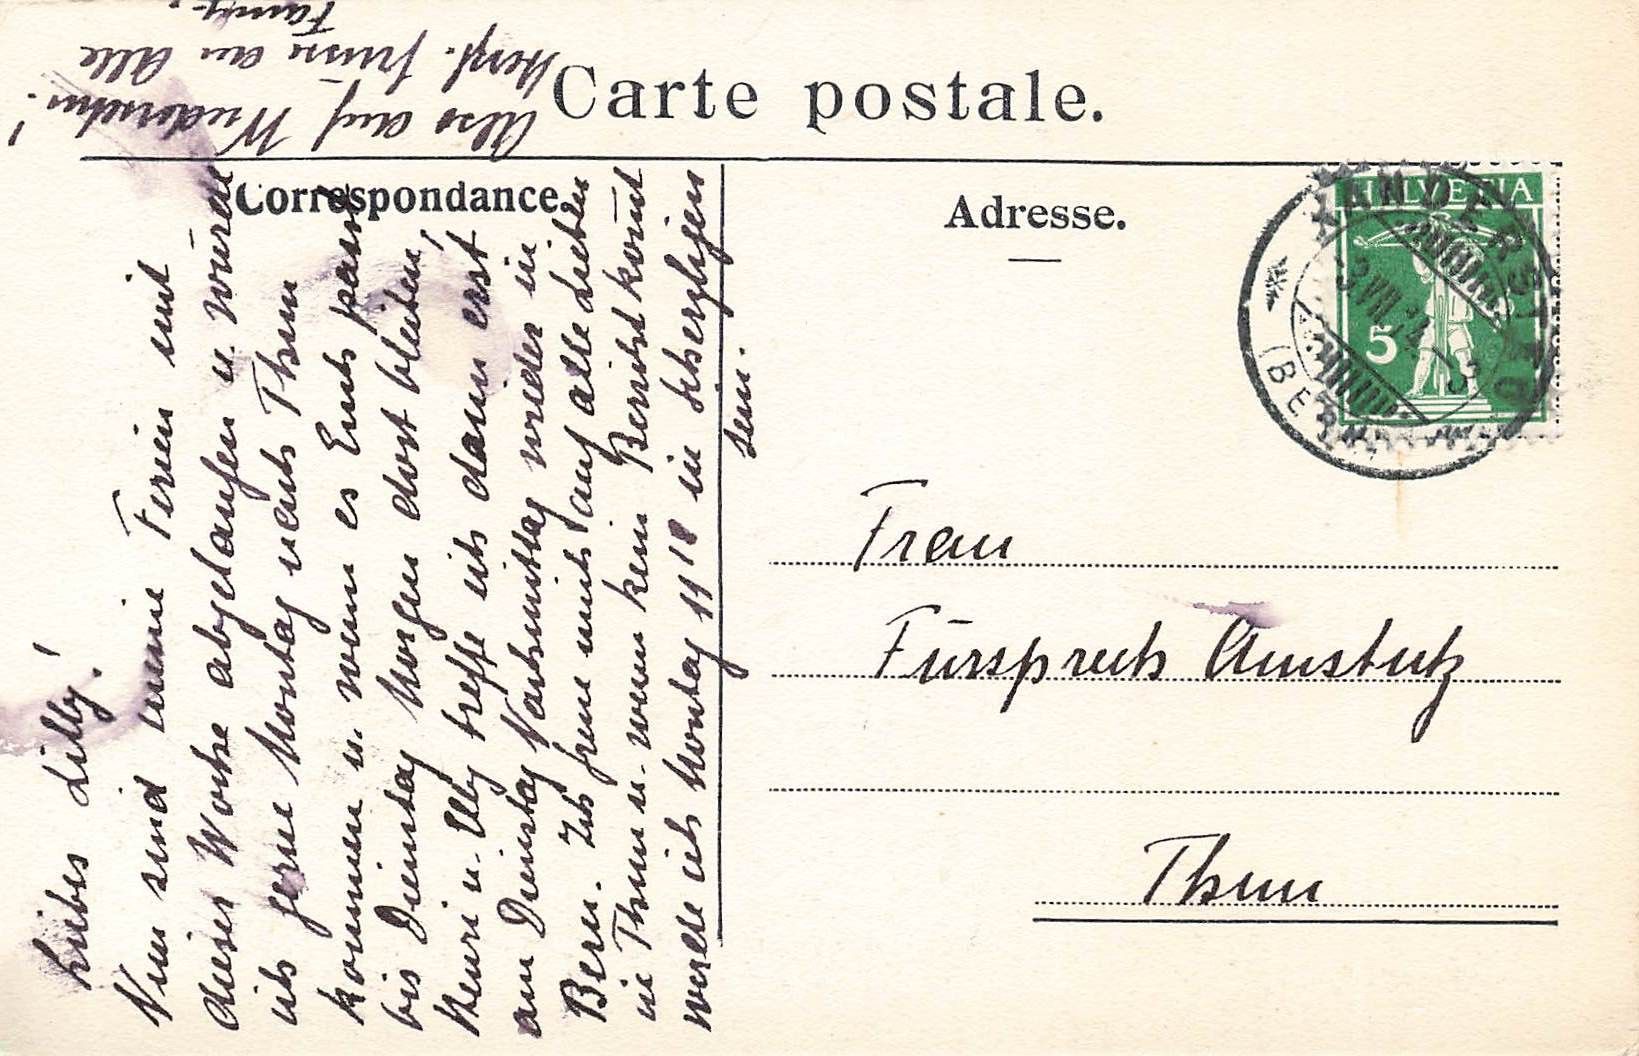 Carte postale.
Correspondance.
Adresse.
HELVETIA
5
KANDERSTEG
(BERN)
Frau
Fürsprech Amstutz
Thun
Liebes Lilly!
Nun sind meine Ferien mit
dieser Woche abgelaufen u. würde
ich gerne Montag nach Thun
kommen u. wenn es Euch passt
bis Dienstag Morgen dort bleiben!
Henri u. Elly treffe ich dann erst
am Dienstag Nachmittag wieder in
Bern. Ich freue mich auf alle Lieben
in Thun u. wenn kein Bericht kommt
werde ich Montag 11 18 in Scherzligen
sein.
Also auf Wiedersehn!
Herzl. Grüsse an Alle
Fanny.